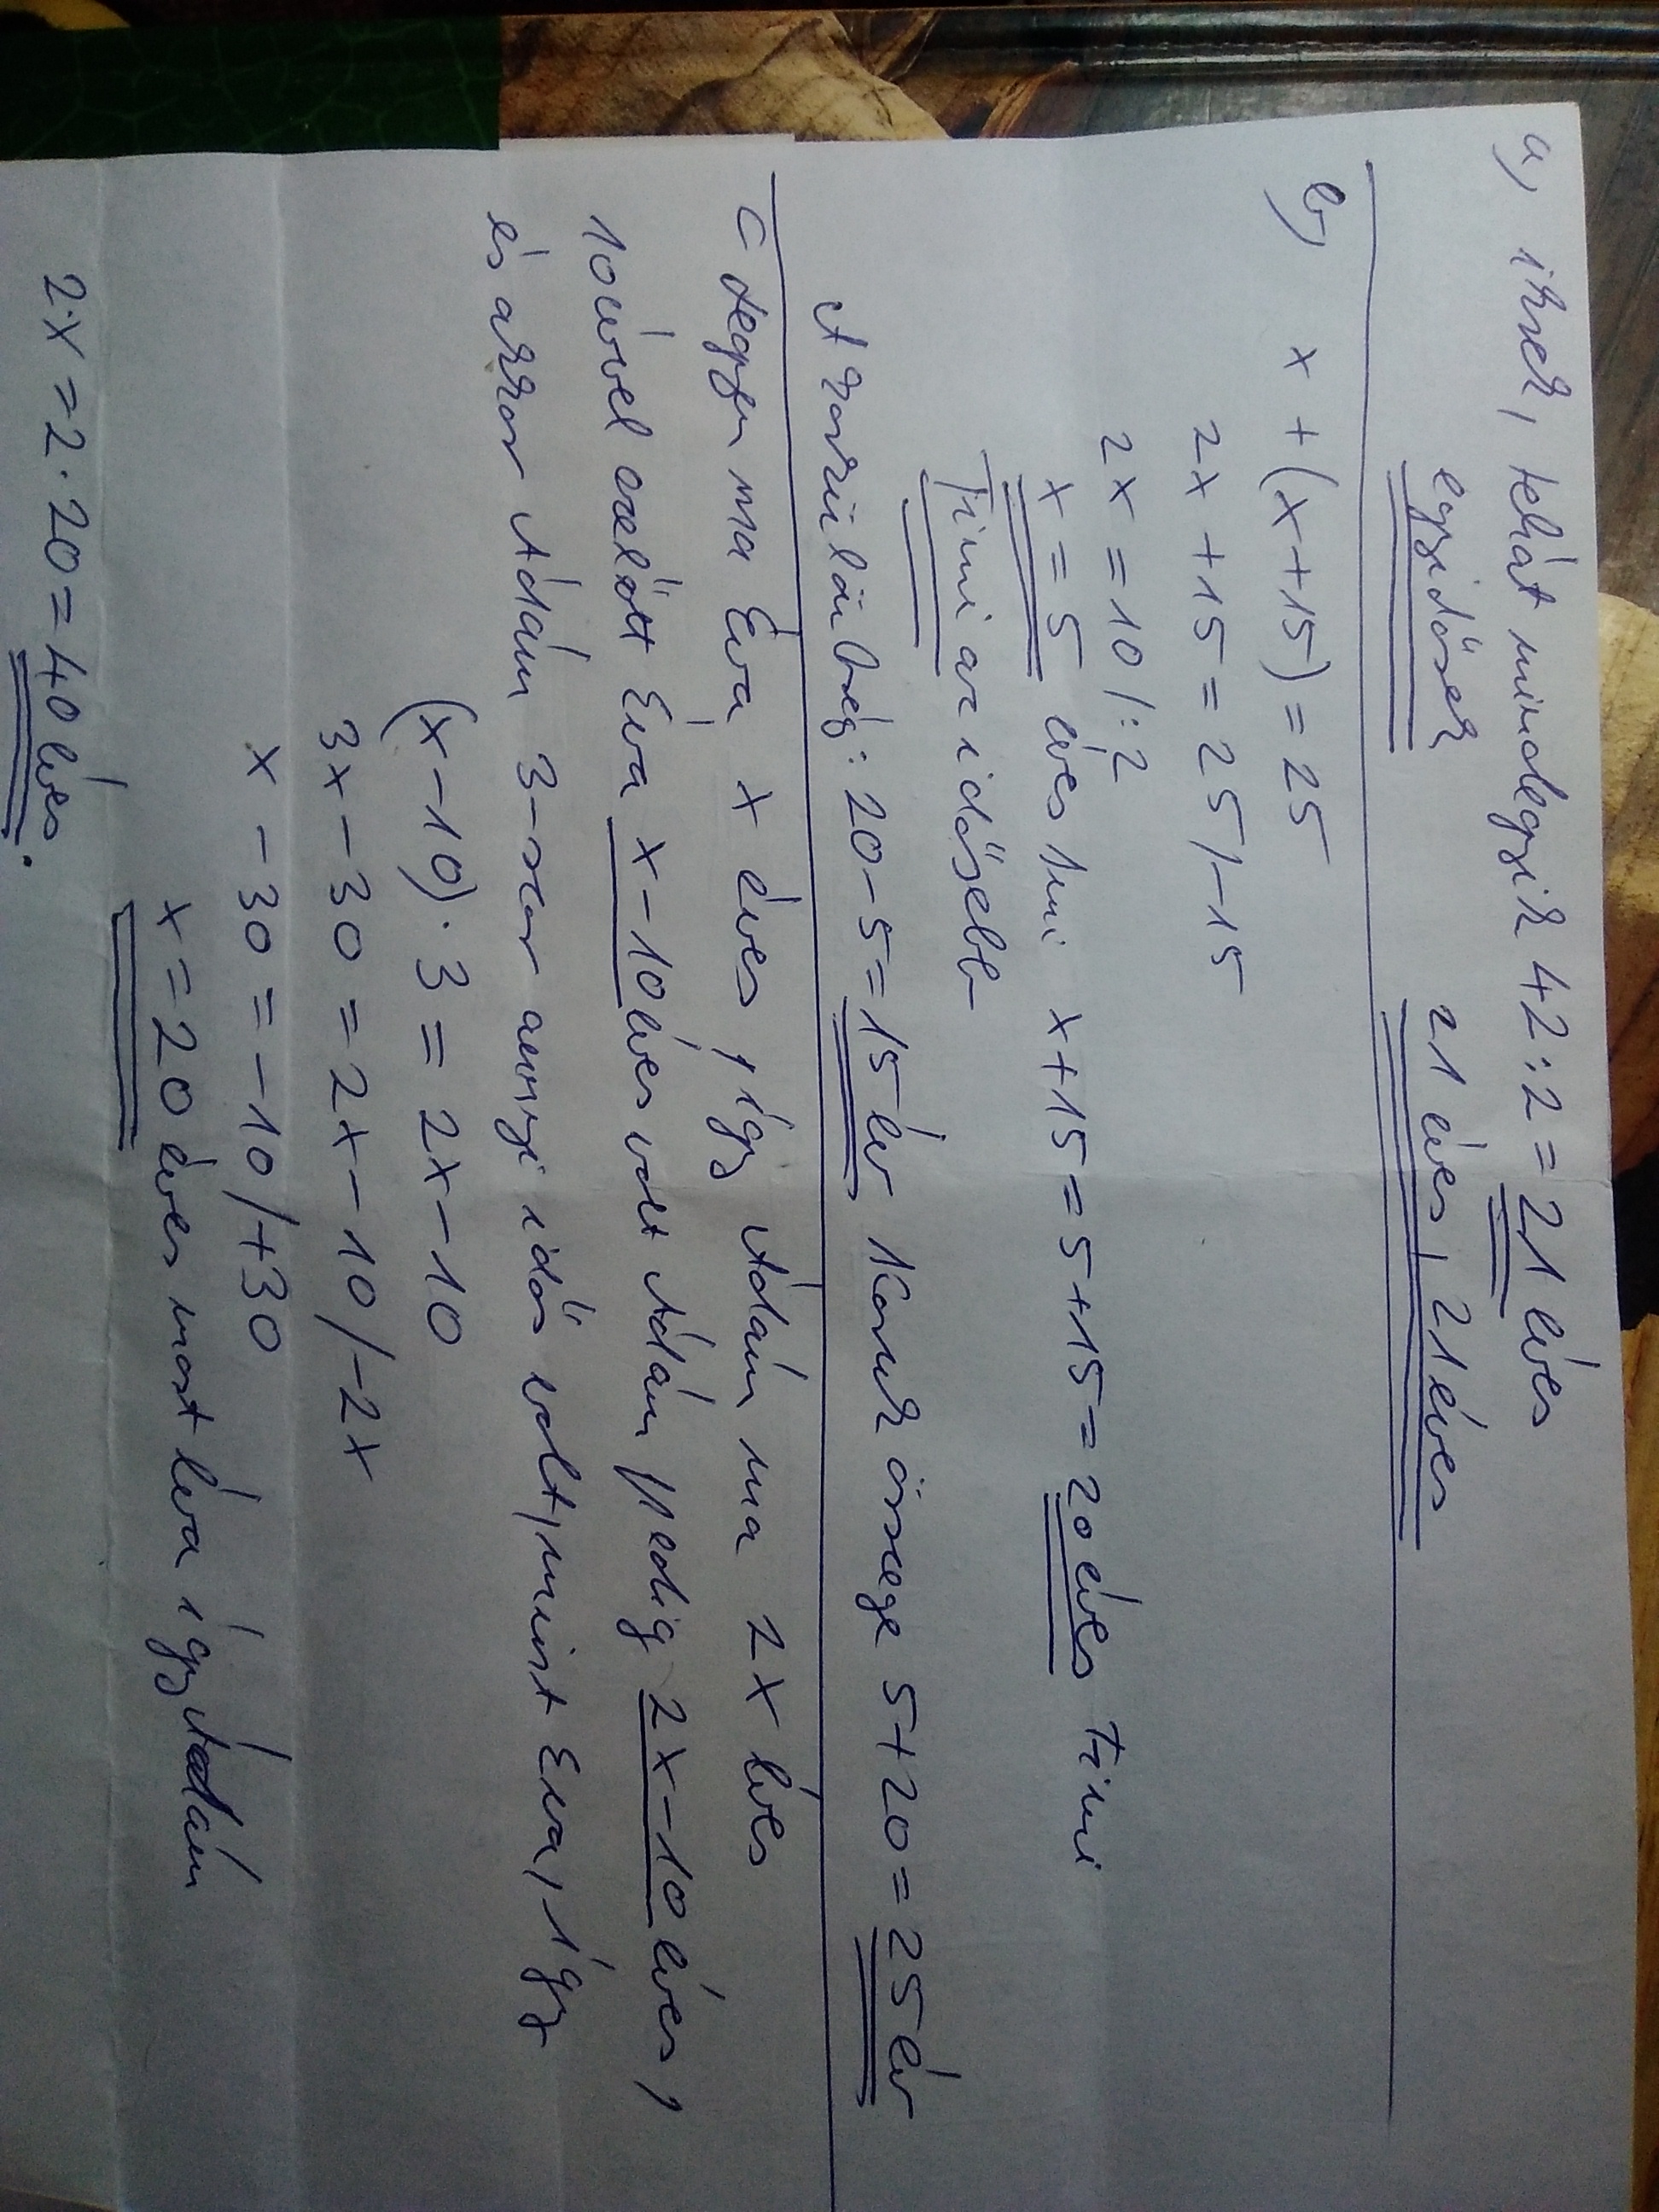 a, ikrek, tehát mindegyik 42:2 = 21 éves
egyidősek 21 éves, 21 éves
b, x + (x+15) = 25
2x + 15 = 25 /-15
2x = 10 /:2
x = 5 éves Imi x+15 = 5+15 = 20 éves Timi
Timi az idősebb
A korkülönbség: 20-5 = 15 év Koruk össege 5+20 = 25 év
c legyen ma Éva x éves, így Ádám ma 2x éves
10 évvel ezelőtt Éva x-10 éves volt Ádám pedig 2x-10 éves,
és akkor Ádám 3-szor annyi idős volt, mint Éva, így
(x-10)·3 = 2x-10
3x-30 = 2x-10 /-2x
x-30 = -10 /+30
x = 20 éves most Éva így Ádám
2·x = 2·20 = 40 éves.